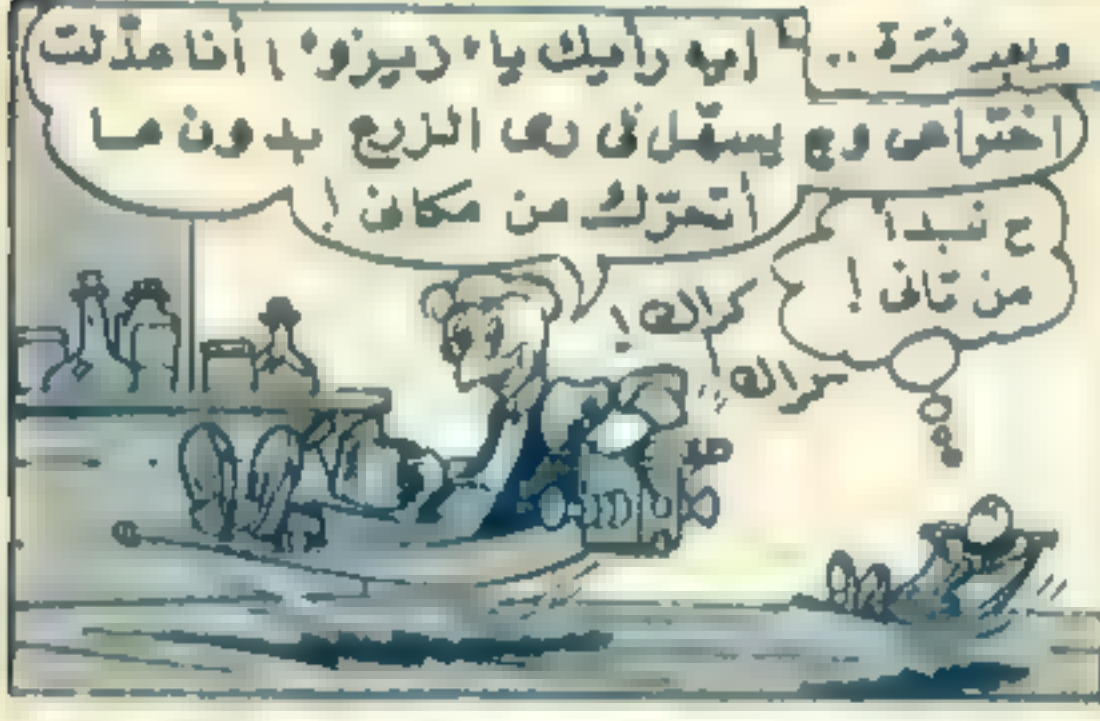 وبعد فترة ..
إيه رأيك يا "زيزو" ! أنا عدلت
اختراعى وح يسهّل لى رى الزرع بدون ما
أتحرّك من مكانى !
كراك !
كراك
ح نبدأ
من تانى !